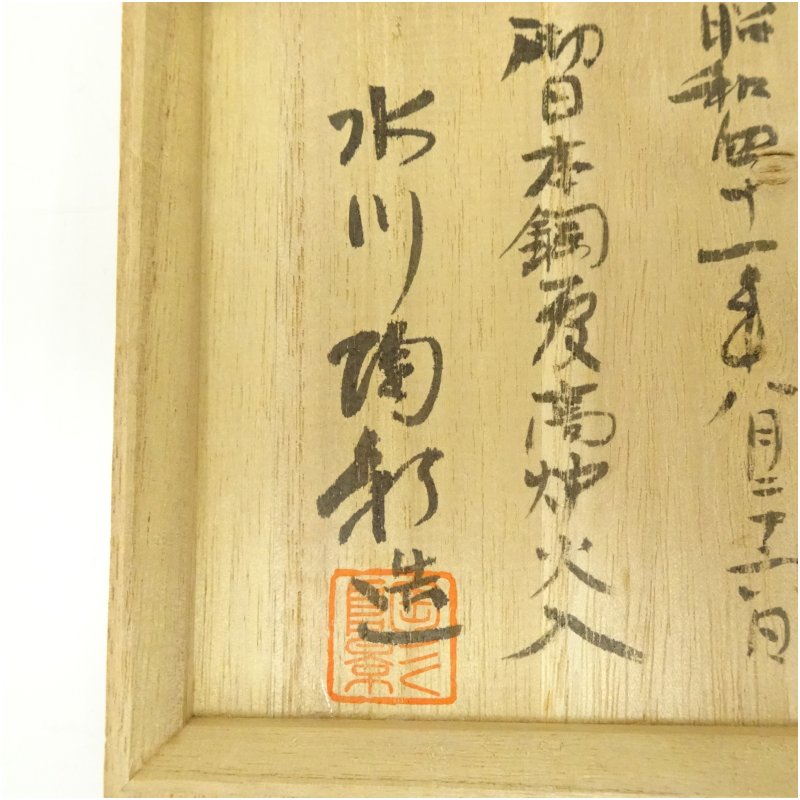 昭和四十一年八月二十六日
日本鋼 高炉火入
水川陶影造